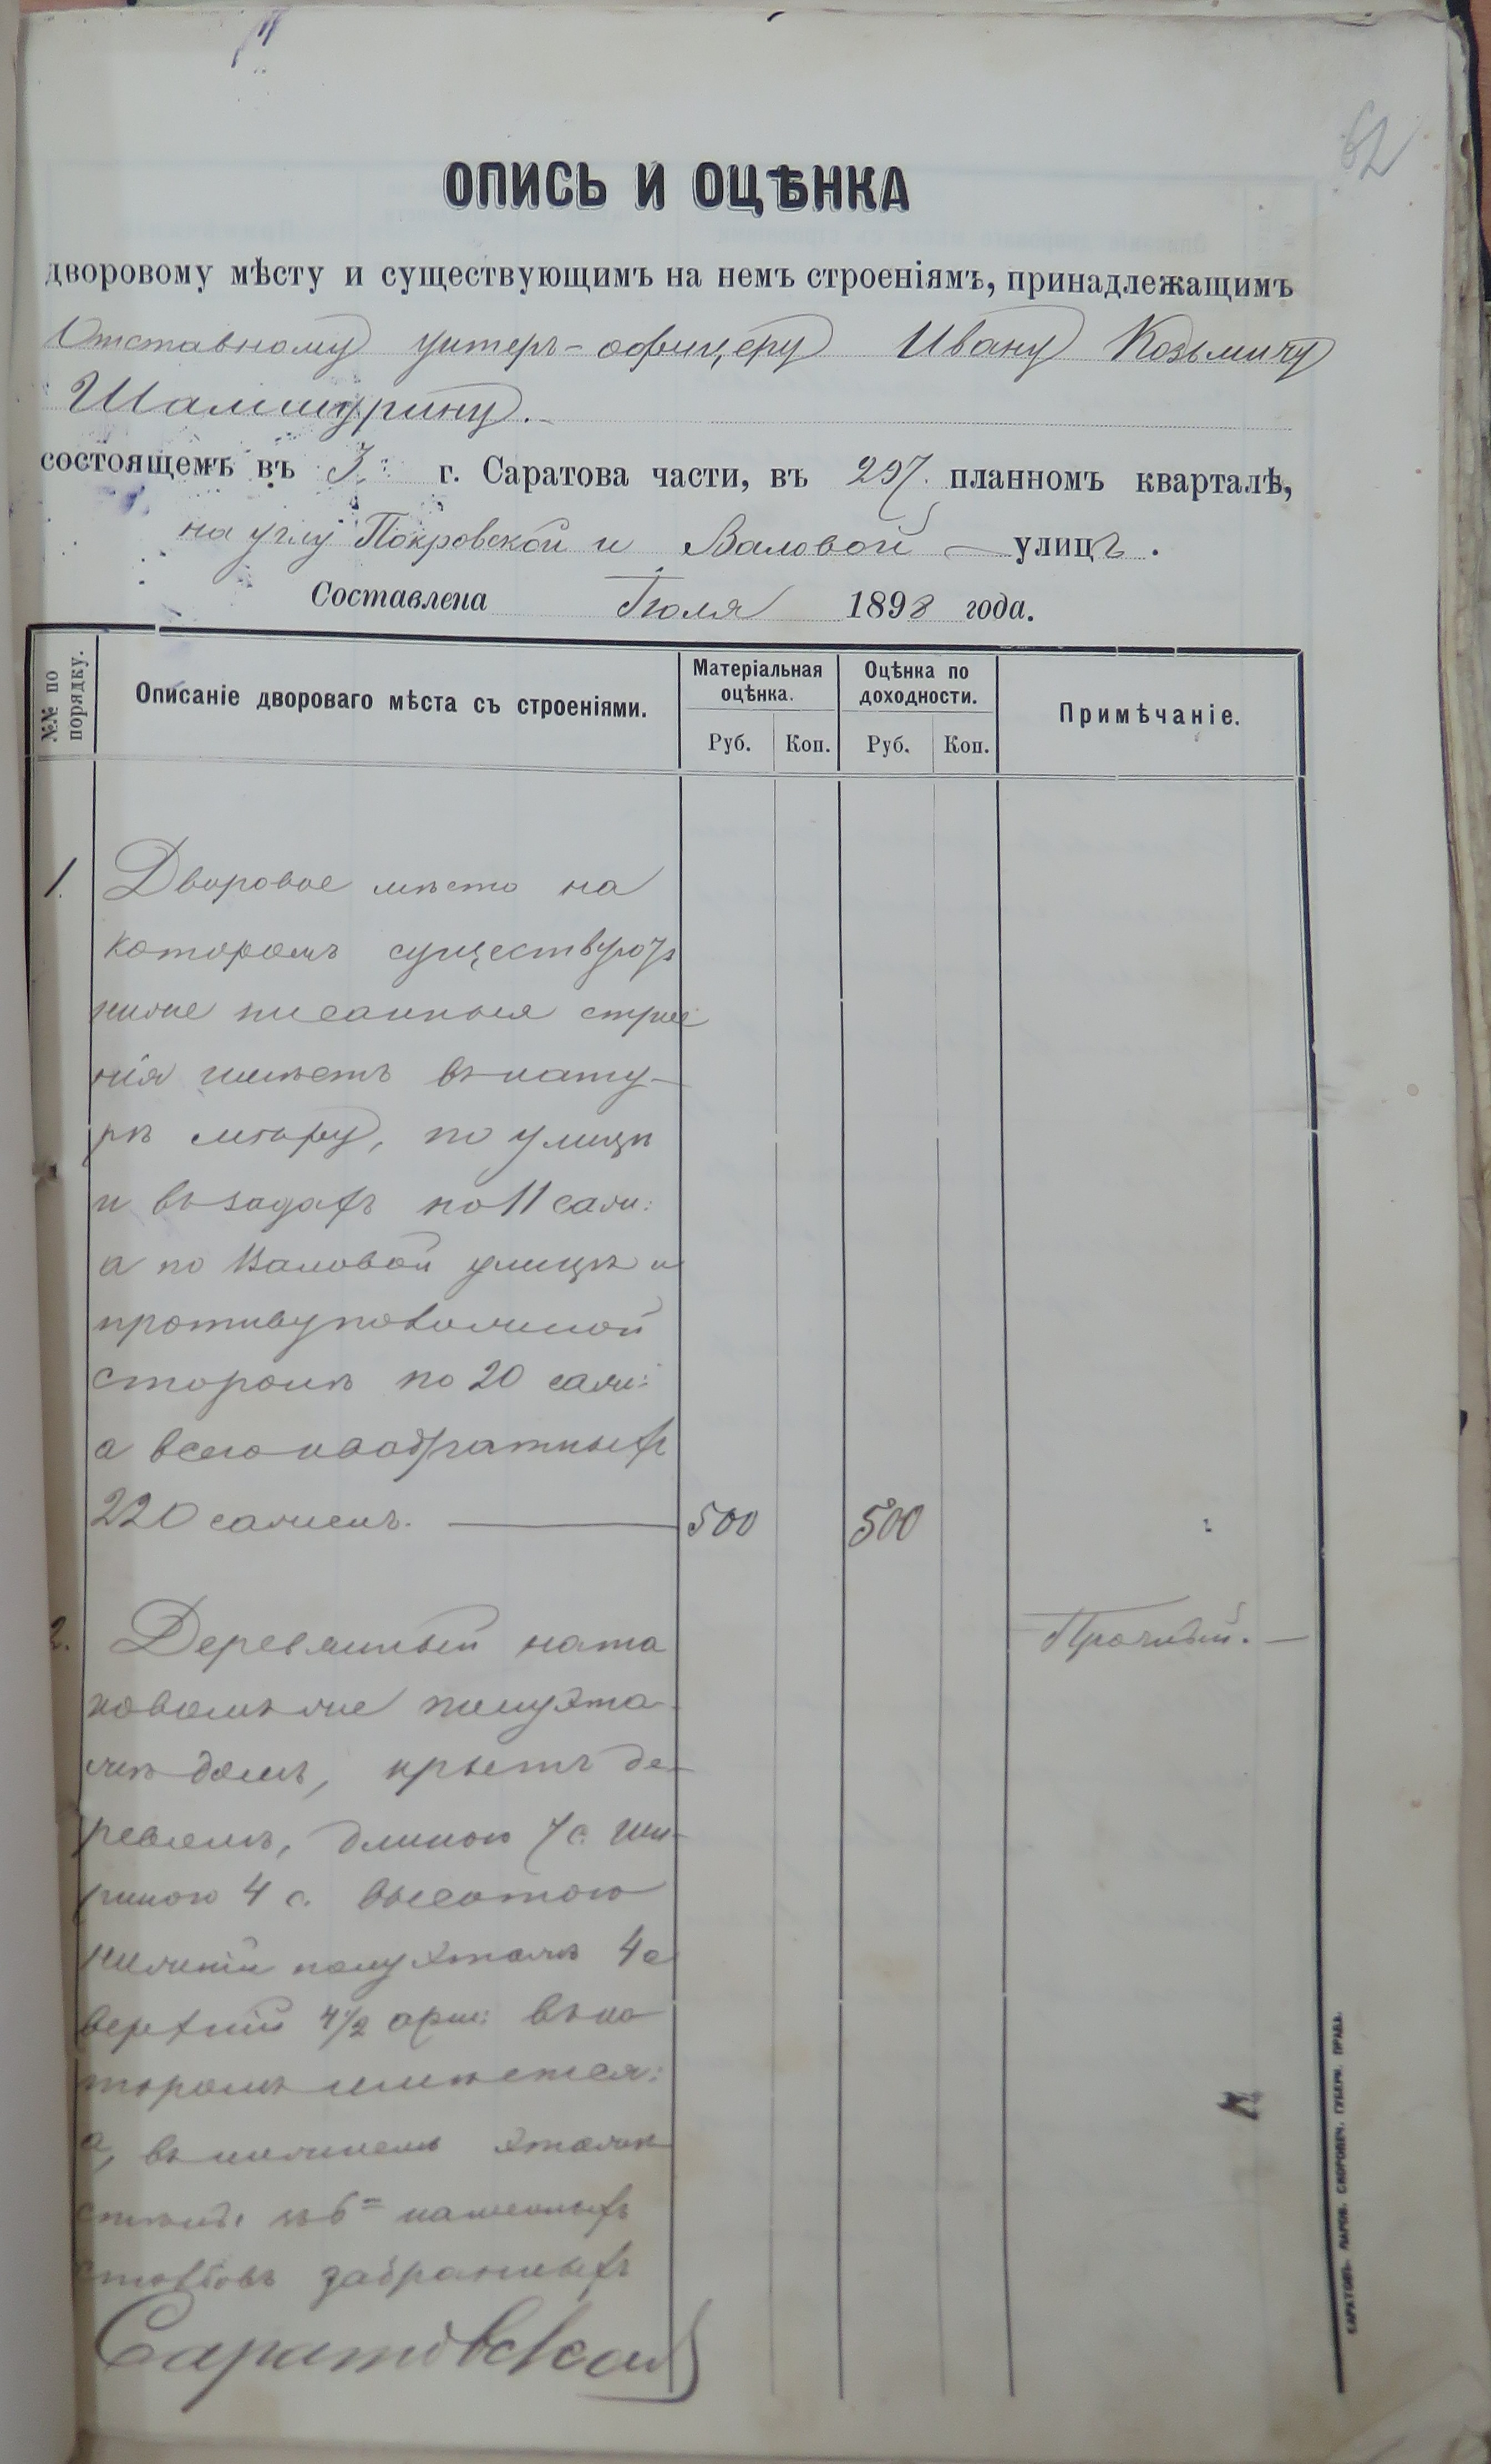 62
ОПИСЬ И ОЦѢНКА
дворовому мѣсту и существующимъ на немъ строеніямъ, принадлежащимъ
Отставному унтеръ-офицеру Ивану Козьмичу
Шамшурину.
состоящемъ въ 3: г. Саратова части, въ 297. планномъ кварталѣ,
на углу Покровской и Валовой улицъ.
Составлена Іюля 1898 года.
№№ по порядку.
Описаніе двороваго мѣста съ строеніями.
Матеріальная оцѣнка.
Оцѣнка по доходности.
Примѣчаніе.
Руб. Коп. Руб. Коп.
1. Дворовое мѣсто на
которомъ существуютъ
ниже писанныя строе
нія имѣетъ въ нату-
рѣ мѣру, по улицѣ
и въ задахъ по 11 саж:
а по Валовой улицѣ и
противуположной
сторонѣ по 20 саж:
а всего квадратныхъ
220 сажень. 500 500
2. Деревянный на та Прочный.
ковомъ же полуэта-
жѣ домъ, крытъ де-
ревомъ, длиною 7 с. ши-
риною 4 с. высотою
нижній полуэтажъ 4 а
верхній 4 1/2 арш: въ ко
торомъ имѣется:
а, въ нижнемъ этажѣ
каменныхъ
столбовъ забранныхъ
Саратовская
САРАТОВЪ. ПАРОВ. СКОРОПЕЧ. ГУБЕРН. ПРАВЛ.